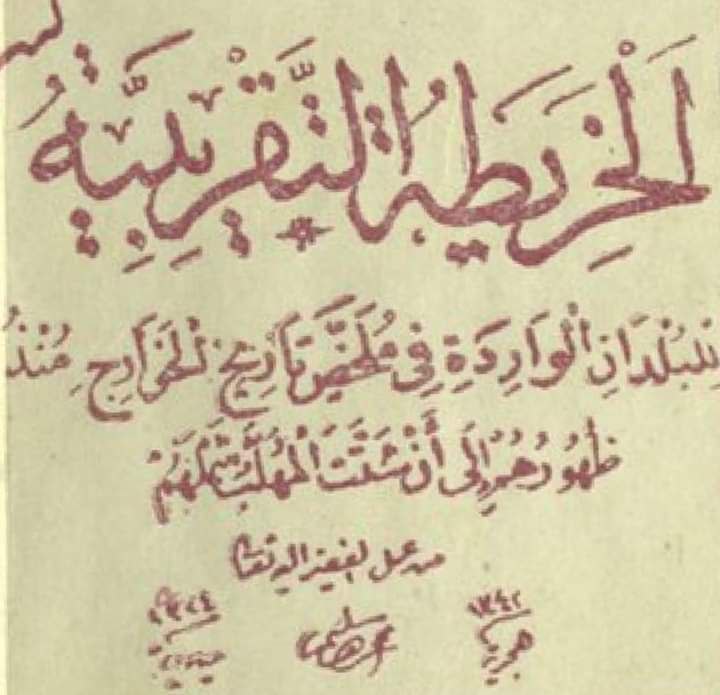 اَلْخَرِيطَةُ التَّقْرِيبِيَّةُ
لِلبُلْدَانِ الْوَارِدَةِ فِى مُلَخَّصِ تَارِيخِ الْخَوَارِجِ مُنْذُ
ظُهُورِهُمْ إِلَى أَنْ شَتَّتَ الْمُهَلَّبُ شَمْلَهُمْ
من عمل الفقير اليه تعالى
١٣٤٢ ١٩٢٤
هجرية ميلادية